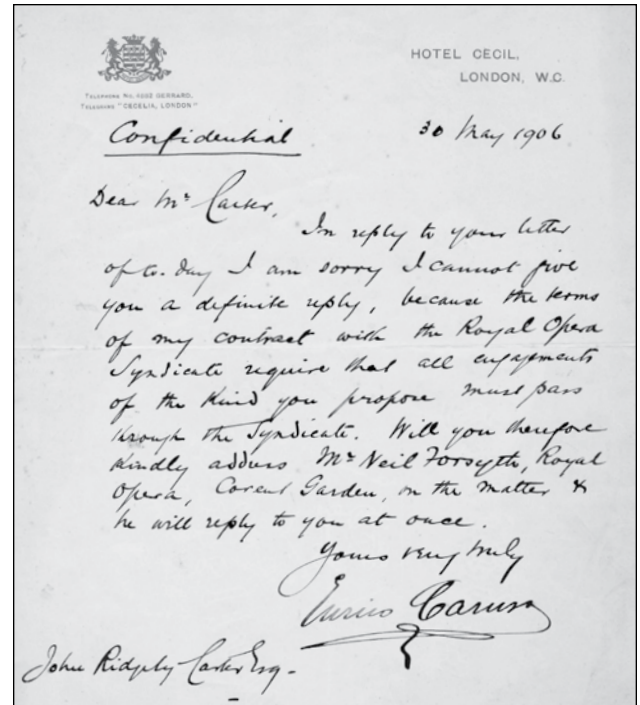 HOTEL CECIL,
LONDON, W.C.
TELEPHONE No. 4682 GERRARD.
TELEGRAMS "CECELIA, LONDON"
Confidential
30 May 1906
Dear Mr Carter,
In reply to your letter
of to-day I am sorry I cannot give
you a definite reply, because the terms
of my contract with the Royal Opera
Syndicate require that all engagements
of the kind you propose must pass
through the Syndicate. Will you therefore
kindly address Mr Neil Forsyth, Royal
Opera, Covent Garden, on the matter &
he will reply to you at once.
Yours very truly
Enrico Caruso
John Ridgely Carter Esq.